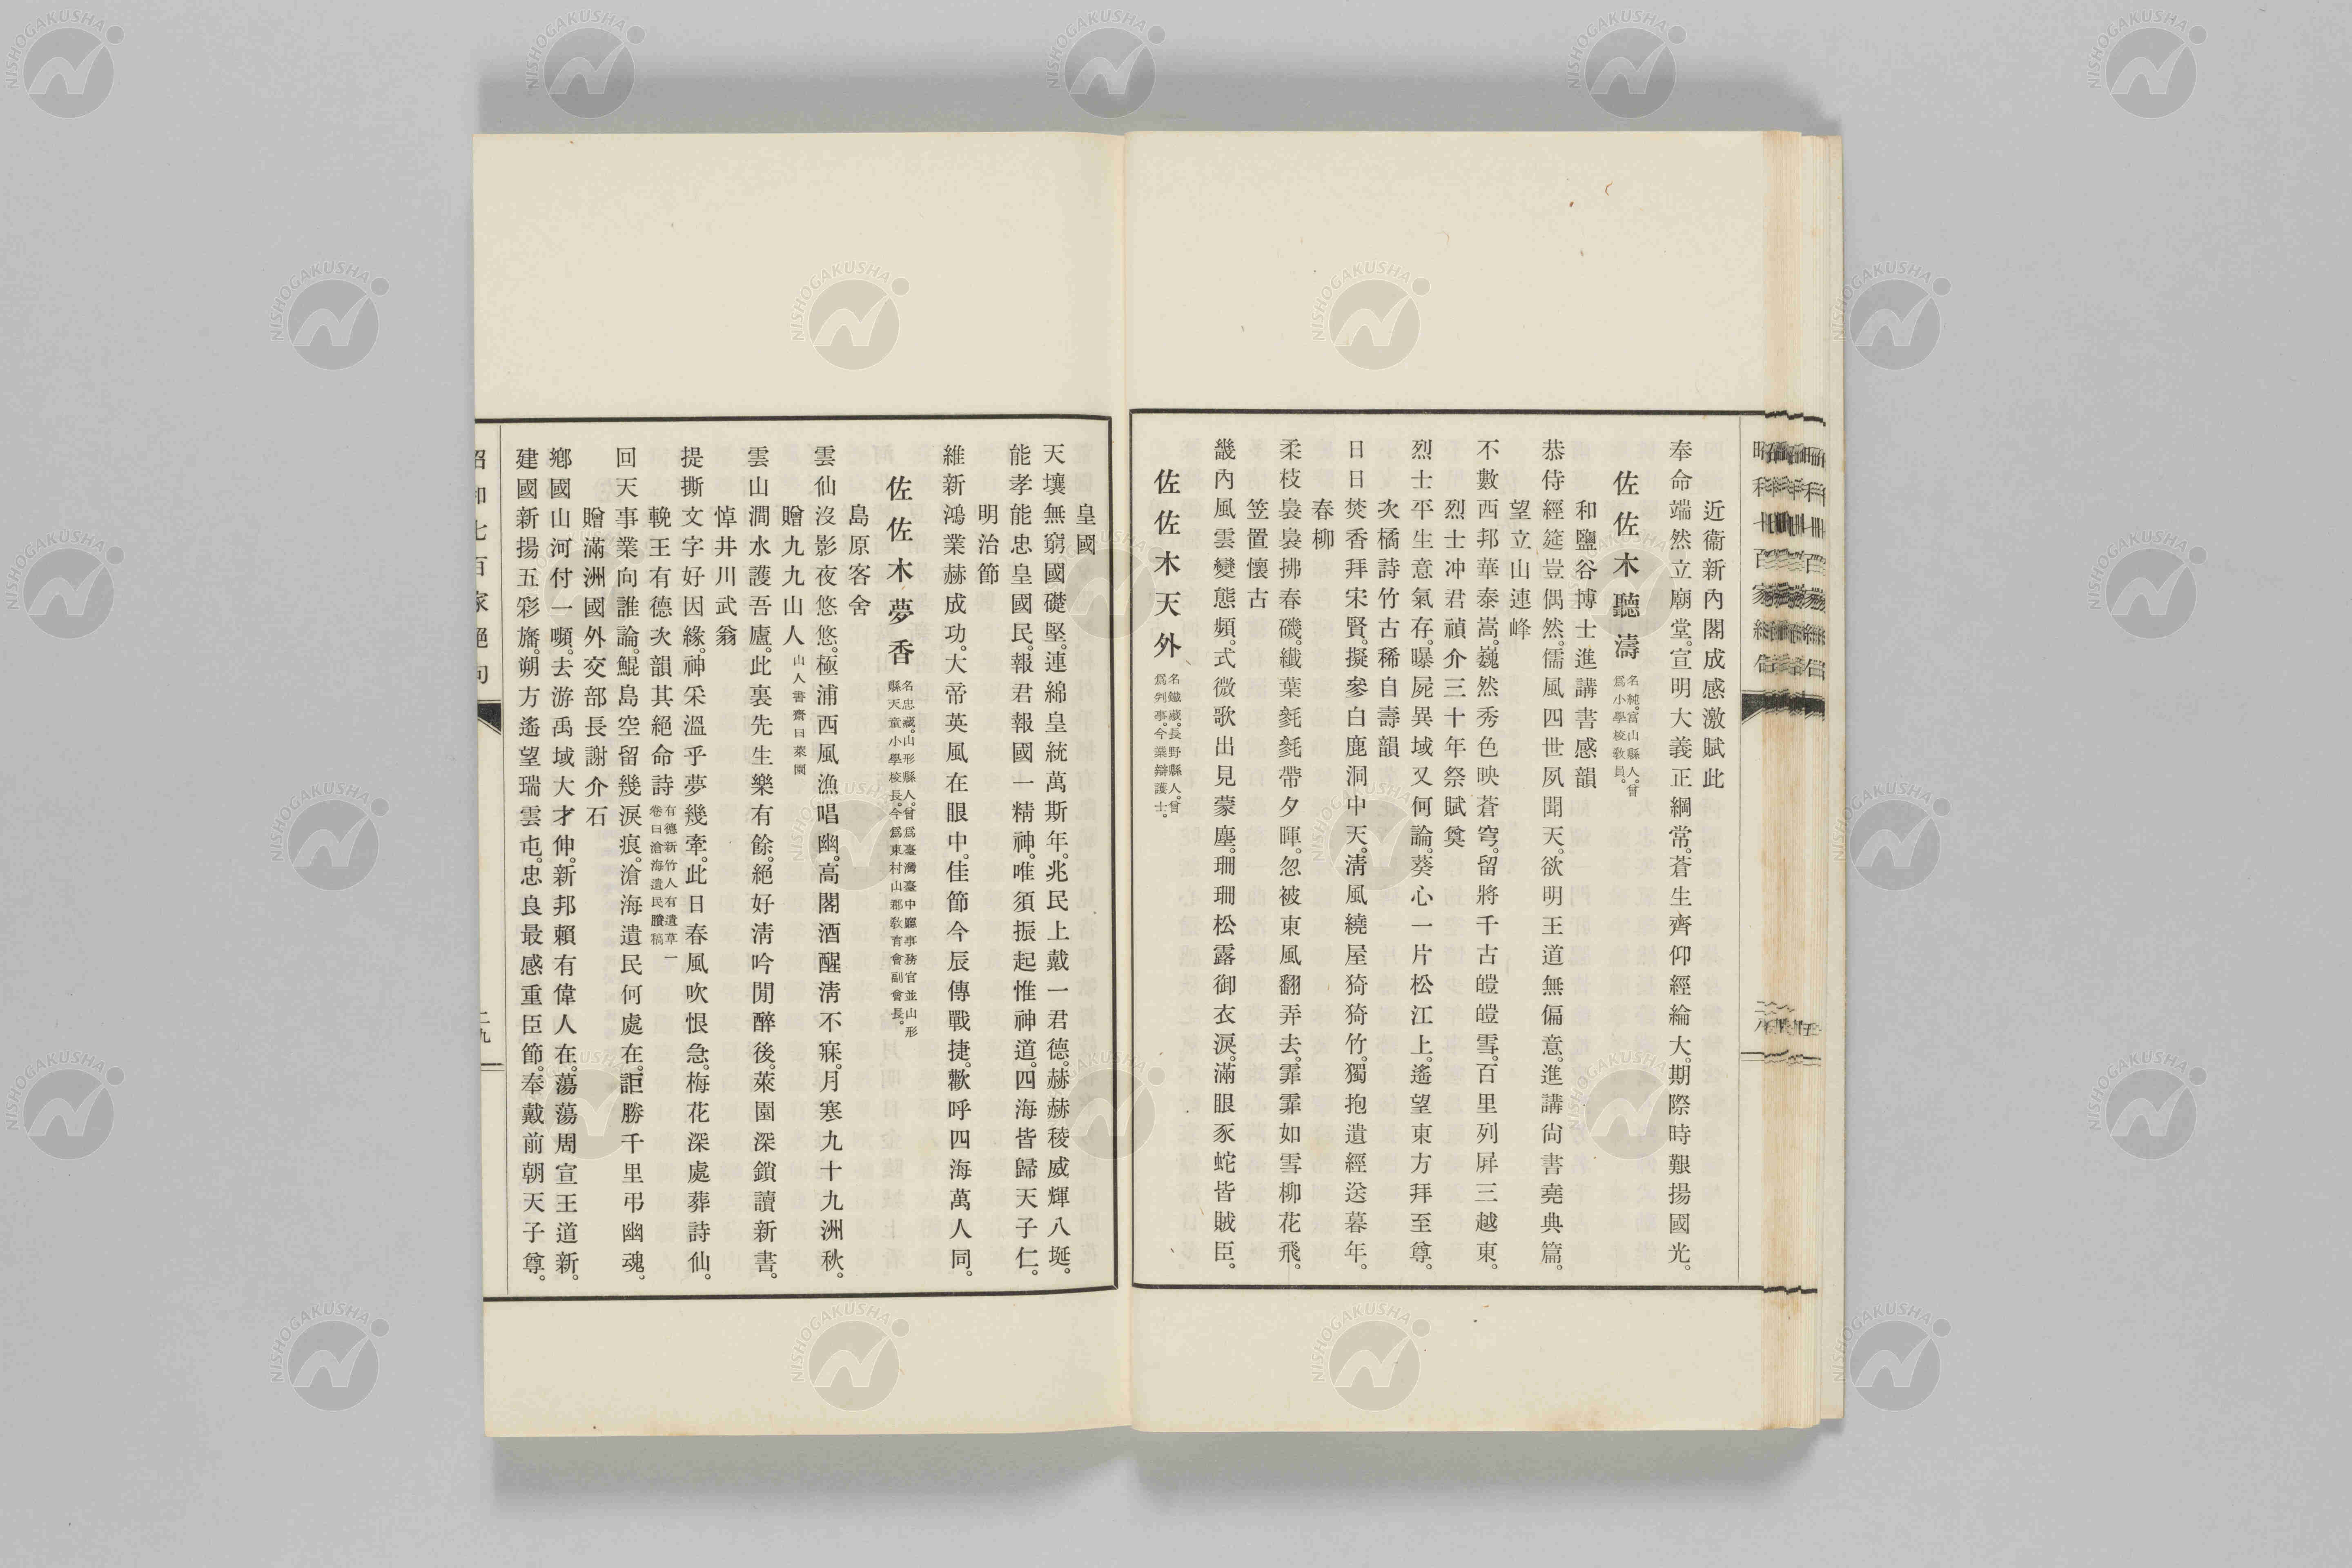 近衞新內閣成感激賦此
奉命端然立廟堂。宣明大義正綱常。蒼生齊仰經綸大。期際時艱揚國光。
佐佐木聽濤 名純。富山縣人。曾爲小學校敎員。
和鹽谷博士進講書感韻
恭侍經筵豈偶然。儒風四世夙聞天。欲明王道無偏意。進講尙書堯典篇。
望立山連峰
不數西邦華泰嵩。巍然秀色映蒼穹。留將千古皚皚雪。百里列屛三越東。
烈士冲君禎介三十年祭賦奠
烈士平生意氣存。曝屍異域又何論。葵心一片松江上。遙望東方拜至尊。
次橘詩竹古稀自壽韻
日日焚香拜宋賢。擬參白鹿洞中天。淸風繞屋猗猗竹。獨抱遺經送暮年。
春柳
柔枝裊裊拂春磯。纖葉毿毿帶夕暉。忽被東風翻弄去。霏霏如雪柳花飛。
笠置懷古
畿內風雲變態頻。式微歌出見蒙塵。珊珊松露御衣淚。滿眼豕蛇皆賊臣。
佐佐木天外 名鐵藏。長野縣人。曾爲判事。今業辯護士。
皇國
天壤無窮國礎堅。連綿皇統萬斯年。兆民上戴一君德。赫赫稜威輝八埏。
能孝能忠皇國民。報君報國一精神。唯須振起惟神道。四海皆歸天子仁。
明治節
維新鴻業赫成功。大帝英風在眼中。佳節今辰傳戰捷。歡呼四海萬人同。
佐佐木夢香 名忠藏。山形縣人。曾爲臺灣臺中廳事務官並山形縣天童小學校長。今爲東村山郡敎育會副會長。
島原客舍
雲仙沒影夜悠悠。極浦西風漁唱幽。高閣酒醒淸不寐。月寒九十九洲秋。
贈九九山人 山人書齋曰萊園
雲山澗水護吾廬。此裏先生樂有餘。絕好淸吟閒醉後。萊園深鎖讀新書。
悼井川武翁
提撕文字好因緣。神采溫乎夢幾牽。此日春風吹恨急。梅花深處葬詩仙。
輓王有德次韻其絕命詩 有德新竹人有遺草一卷曰滄海遺民賸稿
回天事業向誰論。鯤島空留幾淚痕。滄海遺民何處在。詎勝千里弔幽魂。
贈滿洲國外交部長謝介石
鄕國山河付一嚬。去游禹域大才伸。新邦賴有偉人在。蕩蕩周宣王道新。
建國新揚五彩旛。朔方遙望瑞雲屯。忠良最感重臣節。奉戴前朝天子尊。
昭和七百家絕句
二九